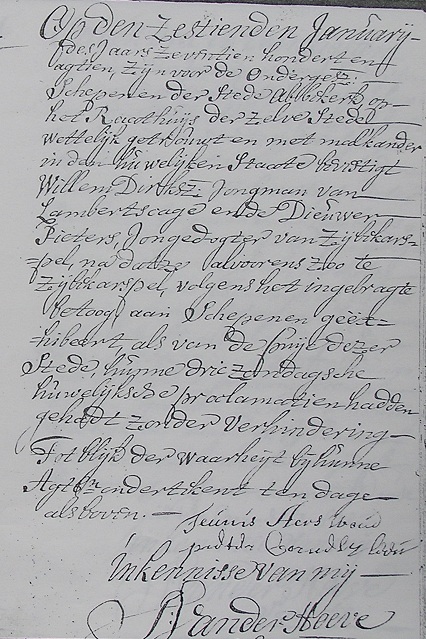 Op den Zestienden January
des Jaars Zeventien hondert en
agtien, Zijn voor de Ondergesz:
Schepenen der Stede Abbekerk op
het Raathuijs der Zelve Stede
wettelijk getrouwt en met malkander
in den huwelijken Staate bevestigt
Willem Dirksz: Jongman van
Lambertscage ende Dieuwer
Pieters, Jongedogter van Zijbkars=
=pel, na dat ze alvoorens zoo te
Zijbkarspel, volgens het ingebragte
betoog aan Schepenen geëx=
=hibeert, als van de puije dezer
Stede, hunne drie Zondagsche
huwelijksche proclamatien hadden
gehadt zonder verhindering
Tot blijk der waarheijt bij hunne
Agtb:n ondertikent ten dage
als boven.
Teunis
In kennisse van mij
Van der Hoeve